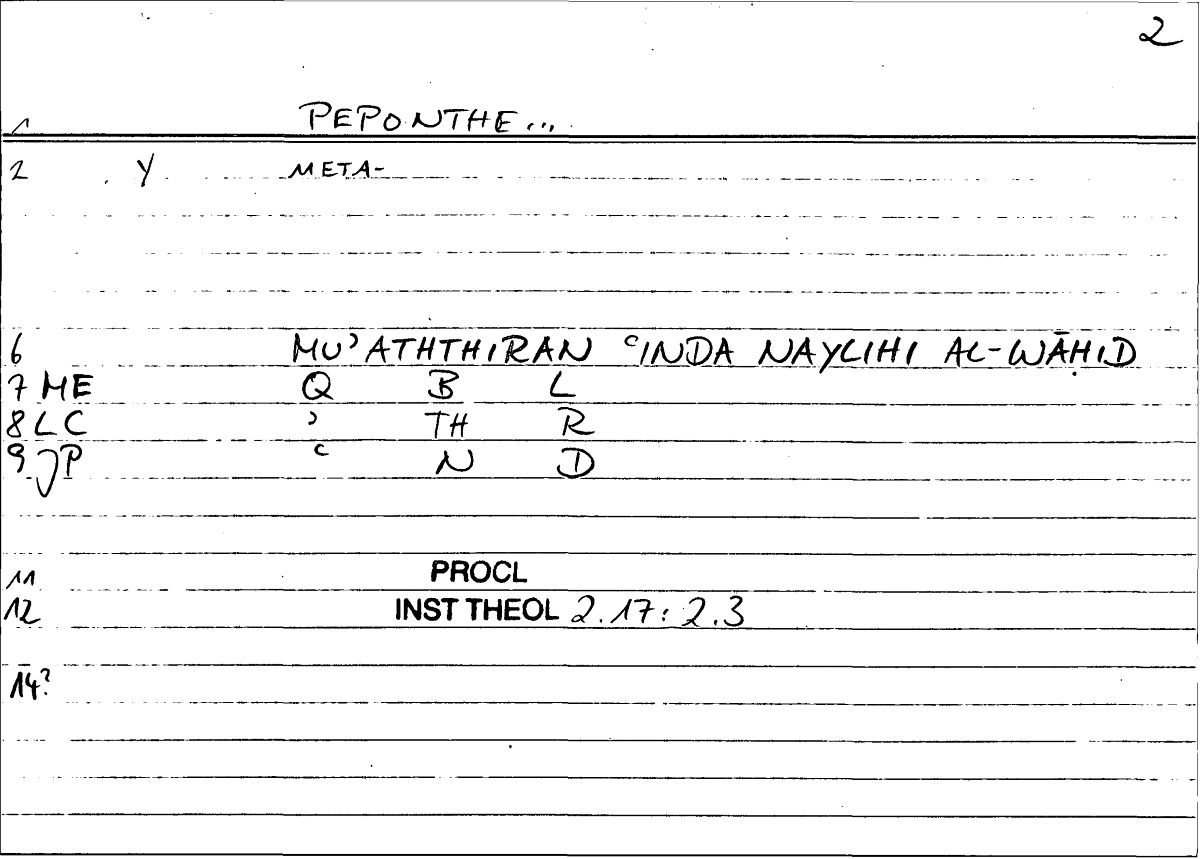 2
1 PEPONTHE...
2 Y META-
6 MU’ATHTHIRAN ‘INDA NAYLIHI AL-WĀḤID
7 ME Q B L
8 LC ’ TH R
9 JP ‘ N D
11 PROCL
12 INST THEOL 2.17: 2.3
14?